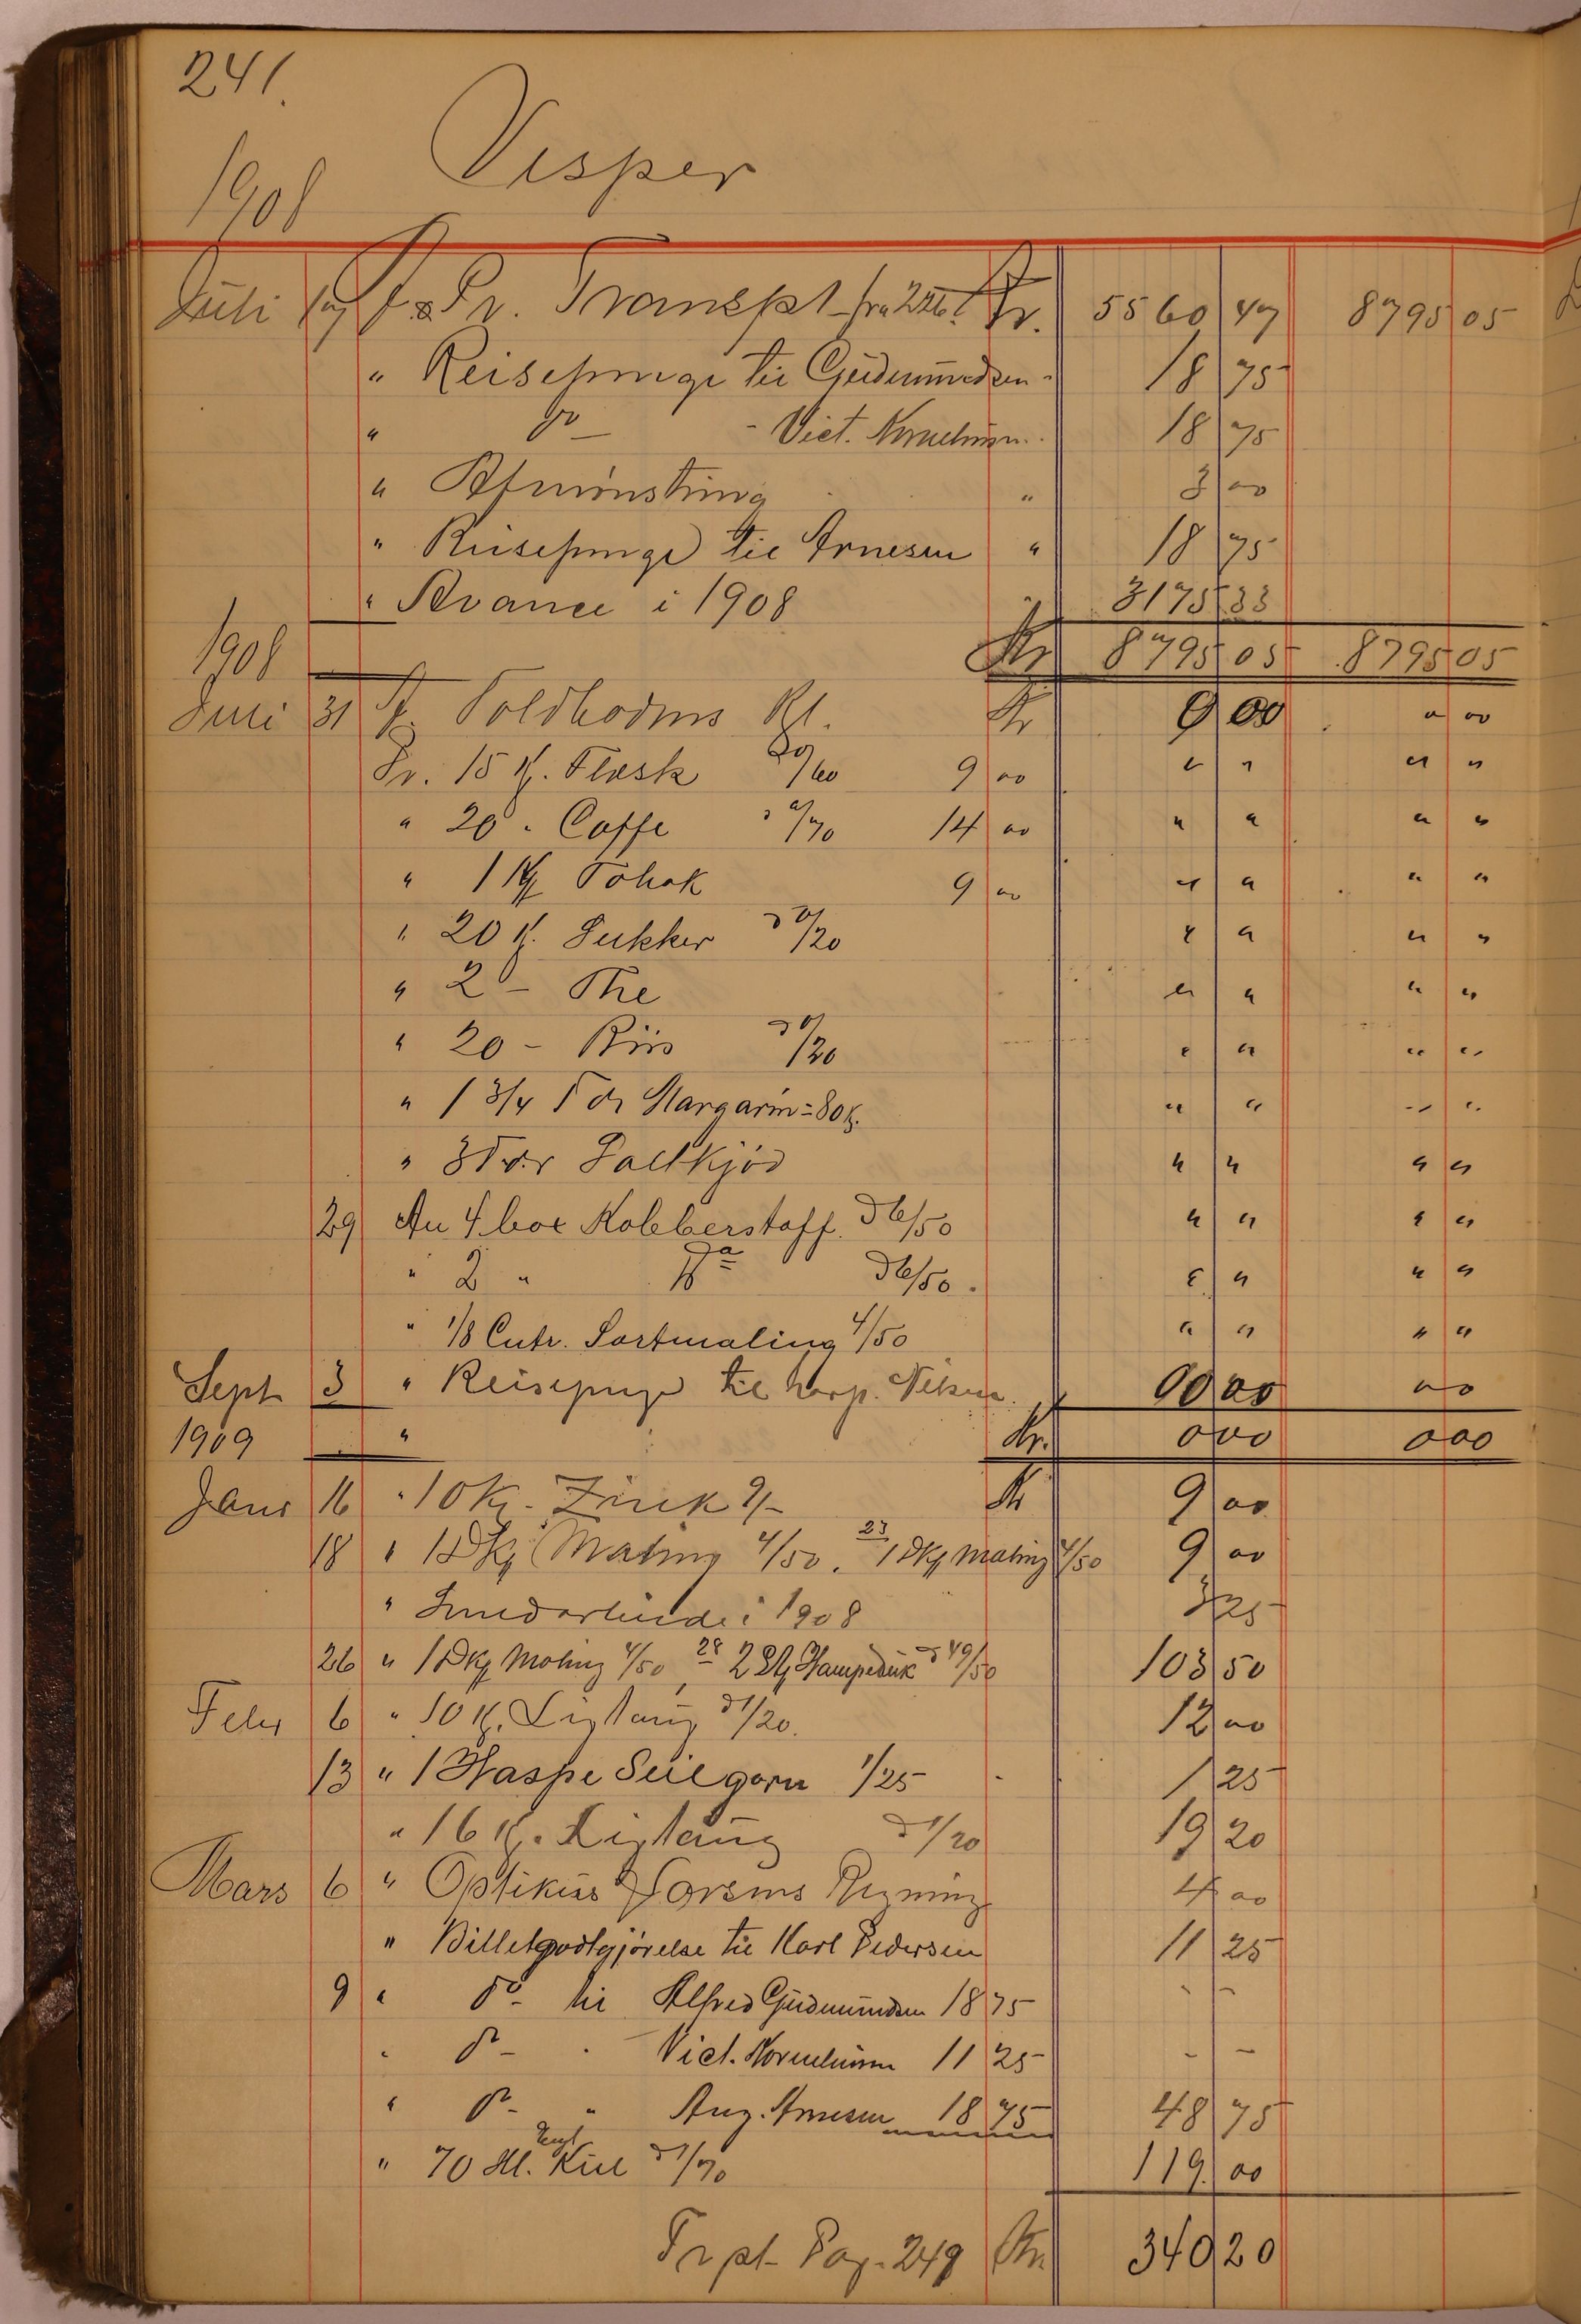 241.
Vesper
1908
Juli 17 Pr. Transpt fra 226. Kr. 5560 47 8795 05
" Reisepenge til Gudmundsen 18 75
" Do - Vict. Korneliusen 18 75
" Afmønstring " 3 00
" Reisepenge til Arnesen " 18 75
" Avance i 1908 " 3175 33
1908 Kr 8795 05 8795 05
Juli 31 Toldbodens Rg. Kr 0 00 " 00
Pr. 15 K. Flesk /60 9 00 " " " "
" 20 " Caffe a /70 14 00 " " " "
" 1 Kg Tobak 9 00 " " " "
" 20 K. Sukker a /20 " " " "
" 2 - The " " " "
" 20 - Riis a /20 " " " "
" 1 3/4 Tdr Margarin = 80 K. " " " "
" 3 Tdr Saltkjød " " " "
29 An 4 box Kobberstoff a 6/50 " " " "
" 2 " Do a 6/50. " " " "
" 1/8 Cntr. Sortmaling 4/50 " " " "
Sept 3 " Reisepenge til Nilsen 00 00 00
1909 " Kr. 000 000
Janr 16 " 10 K. Zink 9/- Kr 9 00
18 " 1 Dkg Maling 4/50. 23 1 Dkg Maling 4/50 9 00
" Smedarbeide i 1908 3 25
26 " 1 Dkg Maling 4/50, 28 2 Hampeduk a 49/50 103 50
Febr 6 " 10 K. Ligtaug a 1/20. 12 00
13 " 1 Haspe Seilgarn 1/25 1 25
" 16 K. Ligtaug a 1/20 19 20
Mars 6 " Optikus Regning 4 00
" Billetgodtgjørelse til Karl Pedersen 11 25
9 " Do - til Alfred Gudmundsen 18 75 - -
" Do - " Vict. Korneliusen 11 25 - -
" Do - " Aug. Arnesen 18 75 48 75
" 70 Hl. Engl Kul a 1/70 119 00
Trpt Pag. 249 Kr. 340 20